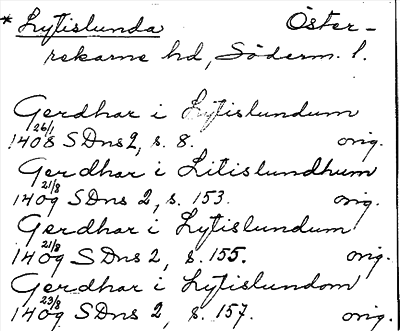 * Lytislunda Öster-
rekarne hd, Söderm. l.
Gerdhar i Lytislundum
26/1 1408 SDns 2, s. 8. orig.
Gerdhar i Litislundhum
21/8 1409 SDns 2, s. 153. orig.
Gerdhar i Lytislundum
21/8 1409 SDns 2, s. 155. orig.
Gerdhar i Lytislundom
23/8 1409 SDns 2, s. 157. orig.